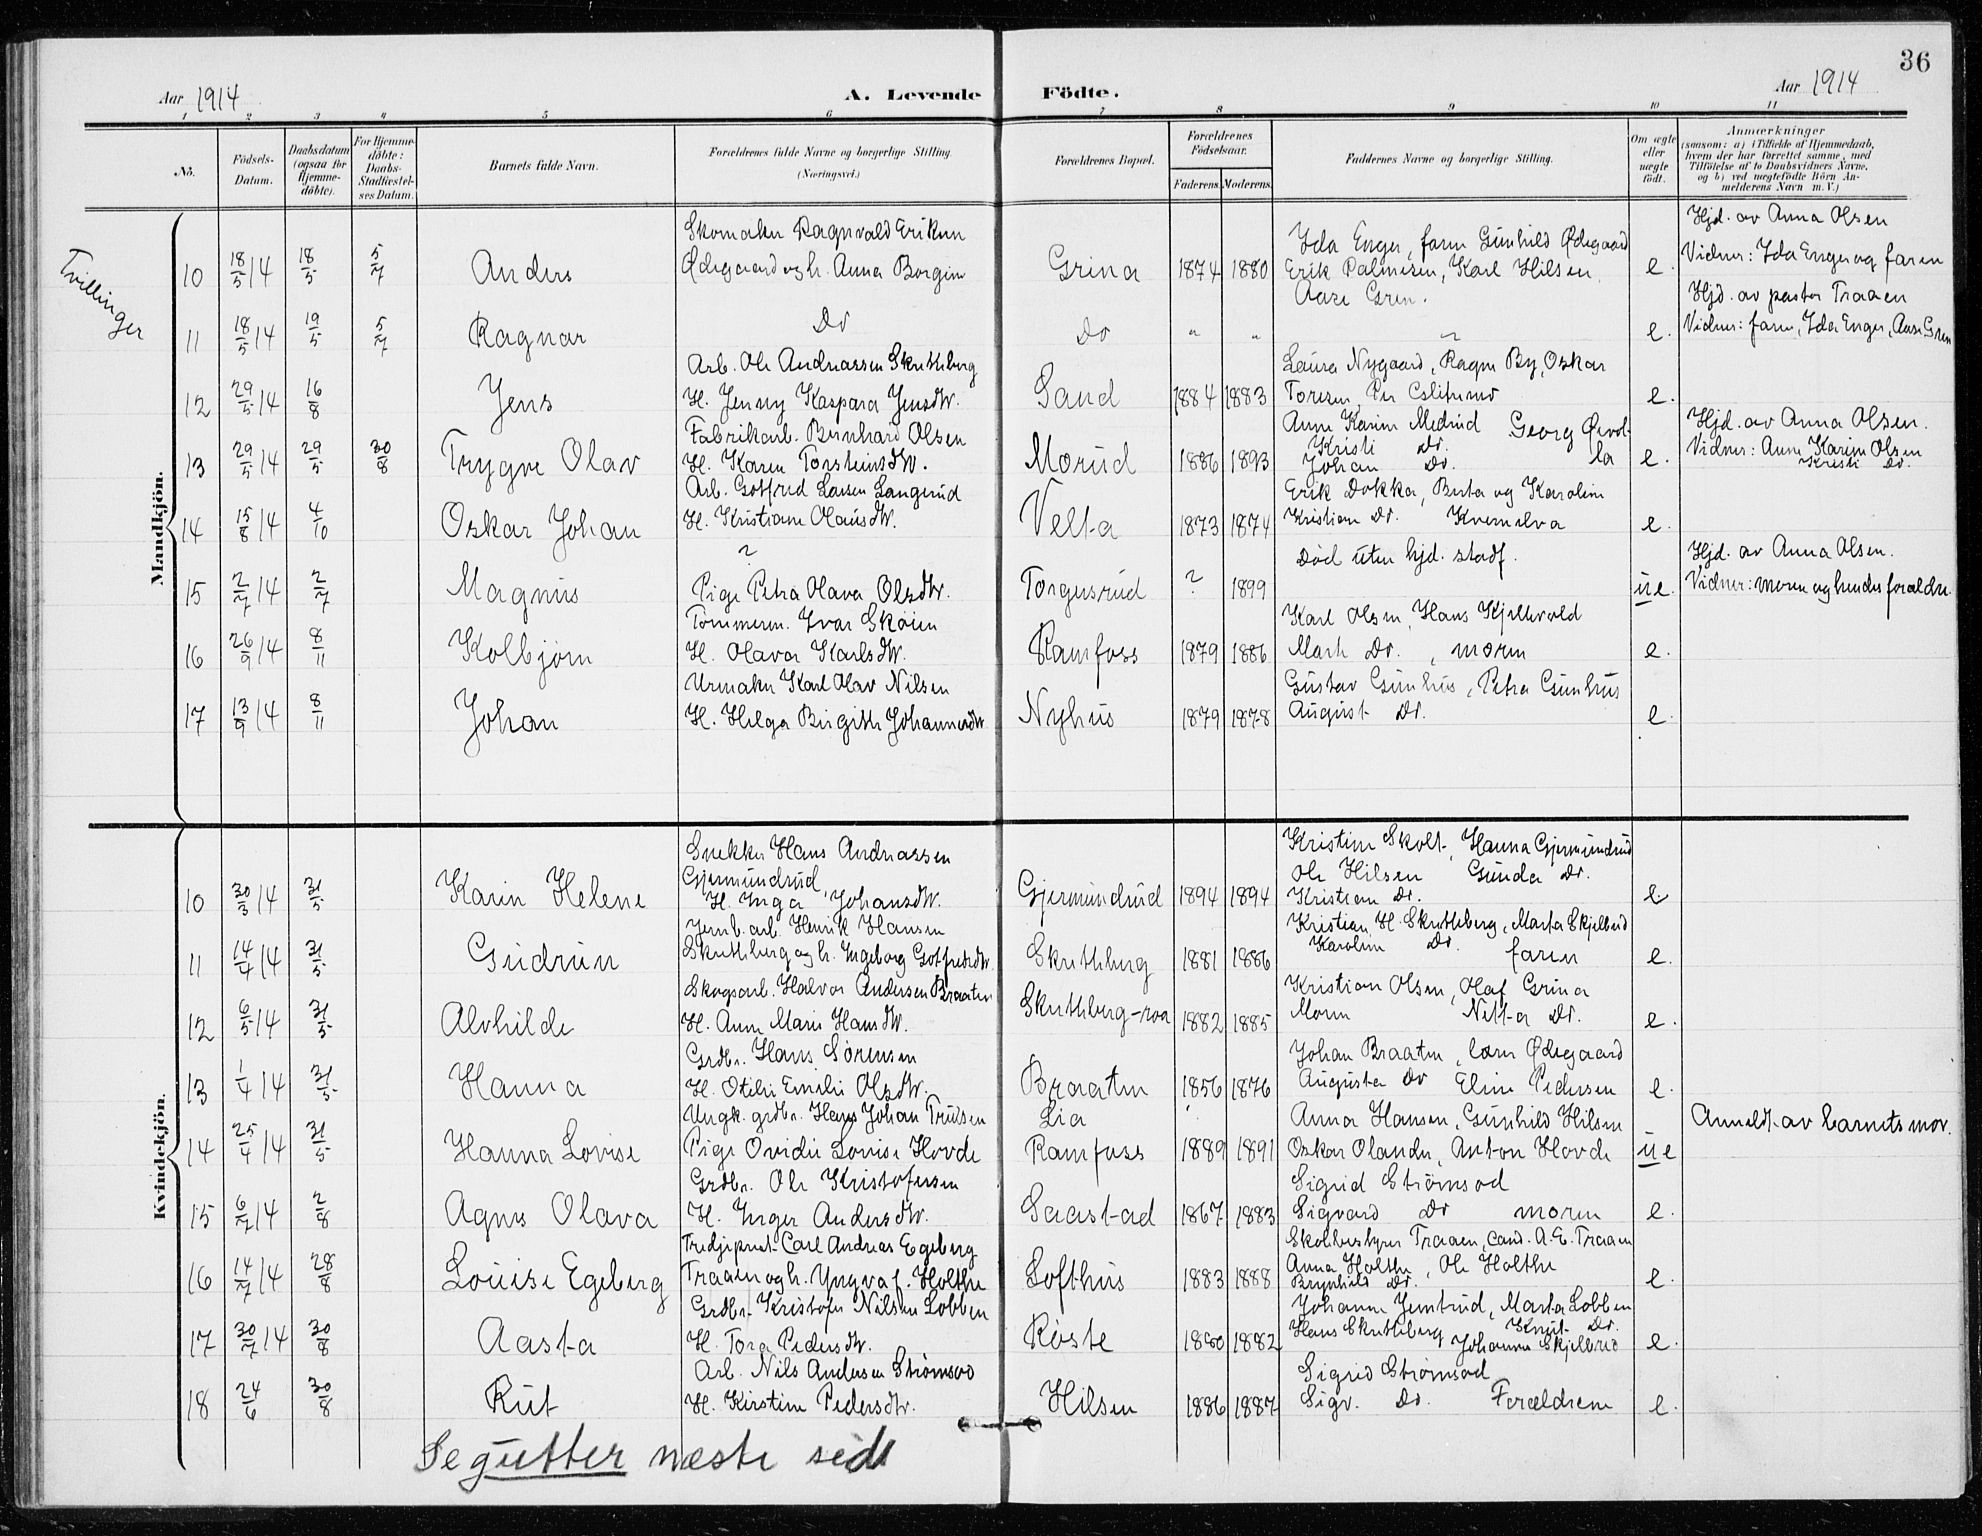 36
Aar 1914
A. Levende Födte.
Aar 1914
1 2 3 4 5 6 7 8 9 10 11
No.
Födsels-Datum.
Daabsdatum (ogsaa for Hjemmedöbte).
For Hjemmedöbte: Daabs-Stadfæstelses Datum.
Barnets fulde Navn.
Forældrenes fulde Navne og borgerlige Stilling.
(Næringsvei.)
Forældrenes Bopæl.
Forældrenes Födselsaar.
Faderens. Moderens.
Faddernes Navne og borgerlige Stilling.
Om ægte eller uægte födt.
Anmærkninger
(saasom: a) i Tilfælde af Hjemmedaab, hvem der har forrettet samme, med Tilföielse af to Daabsvidners Navne, og b) ved uægtefödte Börn Anmelderens Navn m. V.)
Tvillinger
Mandkjön.
Skomaker Ragnvald Eriksen Ida Enger, faren Gunhild Ødegaard Hjd. av Anna Olsen
10 18/5 14 18/5 5/7 Anders Ødegaard og h. Anna Borgine Grina 1874 1880 Erik Palmesen, Karl Hilsen e. Vidner: Ida Enger og faren
Aase Gren. Hjd. av pastor Traaen
11 18/5 14 19/5 5/7 Ragnar Do Do " " " e. Vidner: faren, Ida Enger, Aase Gren
Arb. Ole Andreassen Skretteberg Laura Nygaard, Ragna By, Oskar
12 29/5 14 16/8 Jens H. Jenny Kaspara Jensdtr. Sand 1884 1883 Toresen, Per e.
Fabrikarb. Bernhard Olsen Anne Karine Medrud Georg Øvol- Hjd. av Anna Olsen.
Kristi Do. Vidner: Anne Karine Olsen
13 29/5 14 29/5 30/8 Trygve Olav H. Karen Torsteinsdtr. Morud 1886 1893 Johan Do. la e. Kristi Do.
Arb. Gotfred Larsen Langerud Erik Dokka, Berta og Karoline
14 15/8 14 4/10 Oskar Johan H. Kristiane Olausdtr. Velta 1873 1874 Kristian Do. Kvernelva e.
? Död uten hjd. stadf. Hjd. av Anna Olsen.
15 2/7 14 2/7 Magnus Pige Petra Olava Olsdtr. Torgusrud ? 1899 ue. Vidner: moren og hendes forældre.
Tømmerm. Ivar Skøien Karl Olsen, Hans Kjellevold
16 26/9 14 8/11 Kolbjørn H. Olava Karlsdtr. Ramfoss 1879 1886 Marte Do., moren e.
Urmaker Karl Olav Nilsen Gustav Gunhus, Petra Gunhus
17 13/9 14 8/11 Johan H. Helga Birgitte Johannesdtr. Nyhus 1879 1878 August Do. e.
Kvindekjön.
Snekker Hans Andreassen Kristine Skolt, Hanna Gjermundrud
Gjermundrud, Ole Hilsen Gunda Do.
10 30/3 14 31/5 Karin Helene H. Inga Johansdtr. Gjermundrud 1894 1894 Kristian Do. e
Jernb. arb. Henrik Hansen Kristian H. Skretteberg, Marta Skjelbred
11 14/4 14 31/5 Gudrun Skretteberg og h. Ingeborg Gotfredsdtr. Skretteberg 1881 1886 Karoline Do. faren e.
Skogsarb. Halvor Andersen Braaten Kristian Olsen, Olaf Grina
12 6/5 14 31/5 Alvhilde H. Anne Marie Hansdtr. Skretteberg-roa 1882 1885 Moren Netta Do. e.
Grdbr. Hans Sørensen Johan Braaten, Lars Ødegaard
13 1/4 14 31/5 Hanna H. Otilie Emilie Olsdtr. Braaten 1856 1876 Augusta Do Eline Pedersen e.
Ungk. grdbr. Hans Johan Trulsen Lia Anna Hansen, Gunhild Hilsen Anmeldt av barnets mor.
14 25/4 14 31/5 Hanna Lovise Pige Ovidie Lovise Hovde Ramfoss 1889 1891 Oskar Olander, Anton Hovde ue
Grdbr. Ole Kristofersen Sigrid Strömsod
15 6/7 14 2/8 Agnes Olava H. Inger Andersdtr. Saastad 1867 1883 Sigvard Do moren e.
Tredjeprest Carl Andreas Egeberg Skolbestyrer Traaen, cand. A. E. Traaen
16 14/7 14 28/8 Louise Egeberg Traaen og h. Yngva f. Holthe Lofthus 1883 1888 Anna Holthe, Ole Holthe e.
Brynhild Do.
Grdbr. Kristofer Nilsen Lobben Johanne Jemtrud, Marta Lobben
17 30/7 14 30/8 Aasta H. Tora Pedersdtr. Røste 1880 1882 Hans Skretteberg Knut Do. e.
Johanne Skjelbred
Arb. Nils Andersen Strömsod Sigrid Strømsod
18 24/6 30/8 Rut H. Kirstine Pedersdtr. Hilsen 1886 1887 Sigv. Do. Forældrene e.
Se gutter næste side